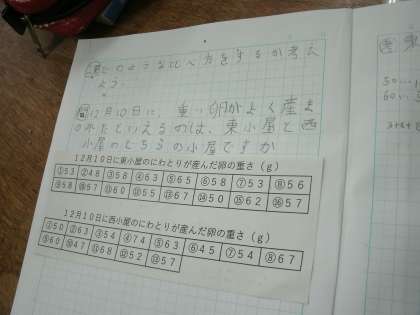 どのようなくらべ方をするか考え
よう。
問 12月10日に、重い卵がよく産ま
れたといえるのは、東小屋と西
小屋のどちらの小屋ですか
12月10日に東小屋のにわとりが産んだ卵の重さ(g)
①53 ②48 ③58 ④63 ⑤65 ⑥58 ⑦53 ⑧56
⑨58 ⑩57 ⑪60 ⑫55 ⑬67 ⑭50 ⑮62 ⑯57
12月10日に西小屋のにわとりが産んだ卵の重さ(g)
①50 ②63 ③54 ④74 ⑤63 ⑥45 ⑦54 ⑧67
⑨60 ⑩47 ⑪68 ⑫52 ⑬57
東
50
60